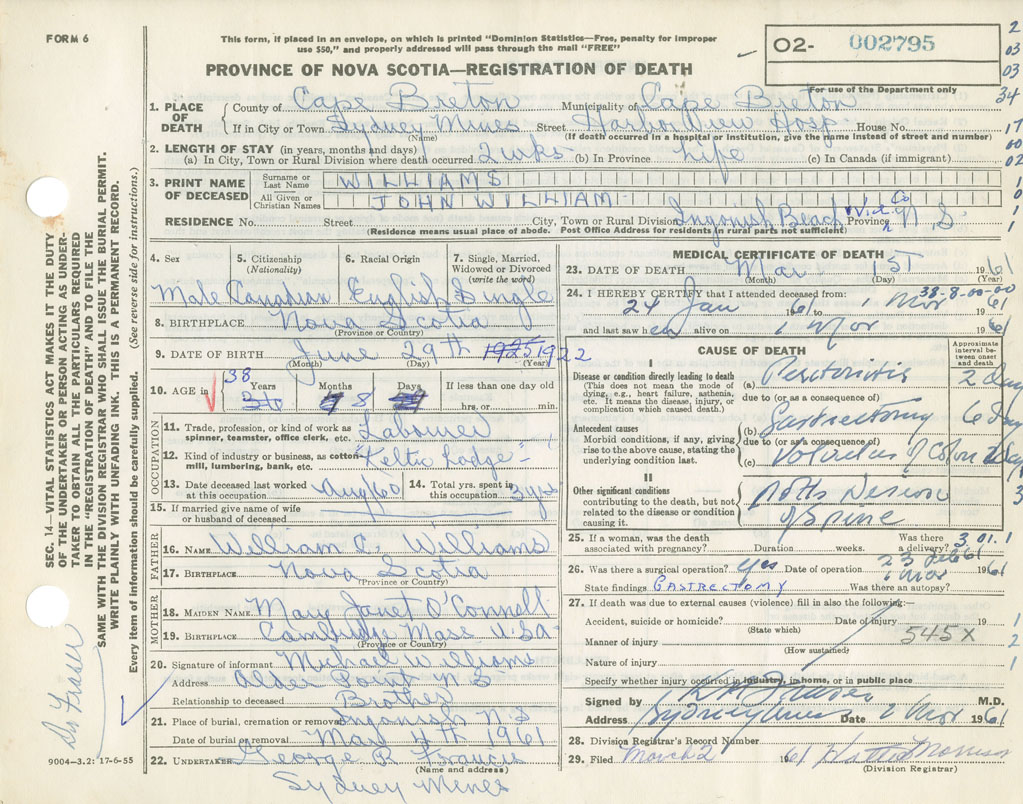 FORM 6
This form, if placed in an envelope, on which is printed "Dominion Statistics—Free, penalty for improper
use $50," and properly addressed will pass through the mail "FREE"
O2- 002795
PROVINCE OF NOVA SCOTIA—REGISTRATION OF DEATH
For use of the Department only
2
03
03
34
17
00
02
1. PLACE OF DEATH County of Cape Breton Municipality of Cape Breton
If in City or Town Sydney Mines Street Harbor View Hosp. House No.
(Name) (If death occurred in a hospital or institution, give the name instead of street and number)
2. LENGTH OF STAY (in years, months and days)
(a) In City, Town or Rural Division where death occurred 2 wks (b) In Province Life (c) In Canada (if immigrant)
3. PRINT NAME OF DECEASED Surname or Last Name WILLIAMS
All Given or Christian Names JOHN WILLIAM
RESIDENCE No. Street City, Town or Rural Division Ingonish Beach Vict Co Province N.S
(Residence means usual place of abode. Post Office Address for residents in rural parts not sufficient)
4. Sex 5. Citizenship (Nationality) 6. Racial Origin 7. Single, Married, Widowed or Divorced (write the word)
Male Canadian English Single
8. BIRTHPLACE Nova Scotia
(Province or Country)
9. DATE OF BIRTH June 29th 1925 1922
(Month) (Day) (Year)
10. AGE in 38 Years Months 8 Days If less than one day old
hrs. or min.
OCCUPATION
11. Trade, profession, or kind of work as spinner, teamster, office clerk, etc. Labourer
12. Kind of industry or business, as cotton-mill, lumbering, bank, etc. "Keltic Lodge"
13. Date deceased last worked at this occupation Aug 60 14. Total yrs. spent in this occupation 3 yrs
15. If married give name of wife or husband of deceased
FATHER
16. NAME William C. Williams
17. BIRTHPLACE Nova Scotia
(Province or Country)
MOTHER
18. MAIDEN NAME Mary Janet O'Connell
19. BIRTHPLACE Cambridge Mass U.S.A.
(Province or Country)
20. Signature of informant Michael Williams
Address Alder Point N S
Relationship to deceased Brother
21. Place of burial, cremation or removal Ingonish N.S
Date of burial or removal Mar 4th 1961
22. UNDERTAKER George R. Francis
(Name and address)
Sydney Mines
MEDICAL CERTIFICATE OF DEATH
23. DATE OF DEATH Mar 1ST 1961
(Month) (Day) (Year)
38-8-00-00
24. I HEREBY CERTIFY that I attended deceased from:
24 Jan 1961 to 1 Mar 1961
and last saw him alive on 1 Mar 1961
CAUSE OF DEATH
Approximate interval between onset and death
I
Disease or condition directly leading to death
(This does not mean the mode of dying, e.g., heart failure, asthenia, etc. It means the disease, injury, or complication which caused death.)
(a) Peritonitis 2 day
due to (or as a consequence of)
Antecedent causes
Morbid conditions, if any, giving rise to the above cause, stating the underlying condition last.
(b) Gastrectomy 6 day
due to (or as a consequence of)
(c) Volvulus of Colon
II
Other significant conditions
contributing to the death, but not related to the disease or condition causing it.
Potts Disease
of Spine
25. If a woman, was the death associated with pregnancy? Duration weeks. Was there a delivery?
26. Was there a surgical operation? yes Date of operation 23 Feb 1961
State findings GASTRECTOMY Was there an autopsy?
27. If death was due to external causes (violence) fill in also the following:—
Accident, suicide or homicide? Date of injury 19
(State which)
Manner of injury 545 X
(How sustained)
Nature of injury
Specify whether injury occurred in industry, in home, or in public place
Signed by M.D.
Address Sydney Mines Date 2 Mar 1961
28. Division Registrar's Record Number
29. Filed March 2 1961
(Division Registrar)
SEC. 14—VITAL STATISTICS ACT MAKES IT THE DUTY
OF THE UNDERTAKER OR PERSON ACTING AS UNDER-
TAKER TO OBTAIN ALL THE PARTICULARS REQUIRED
IN THE "REGISTRATION OF DEATH" AND TO FILE THE
SAME WITH THE DIVISION REGISTRAR WHO SHALL ISSUE THE BURIAL PERMIT.
WRITE PLAINLY WITH UNFADING INK. THIS IS A PERMANENT RECORD.
Every item of information should be carefully supplied. (See reverse side for instructions.)
Dr Fraser
9004—3.2: 17-6-55